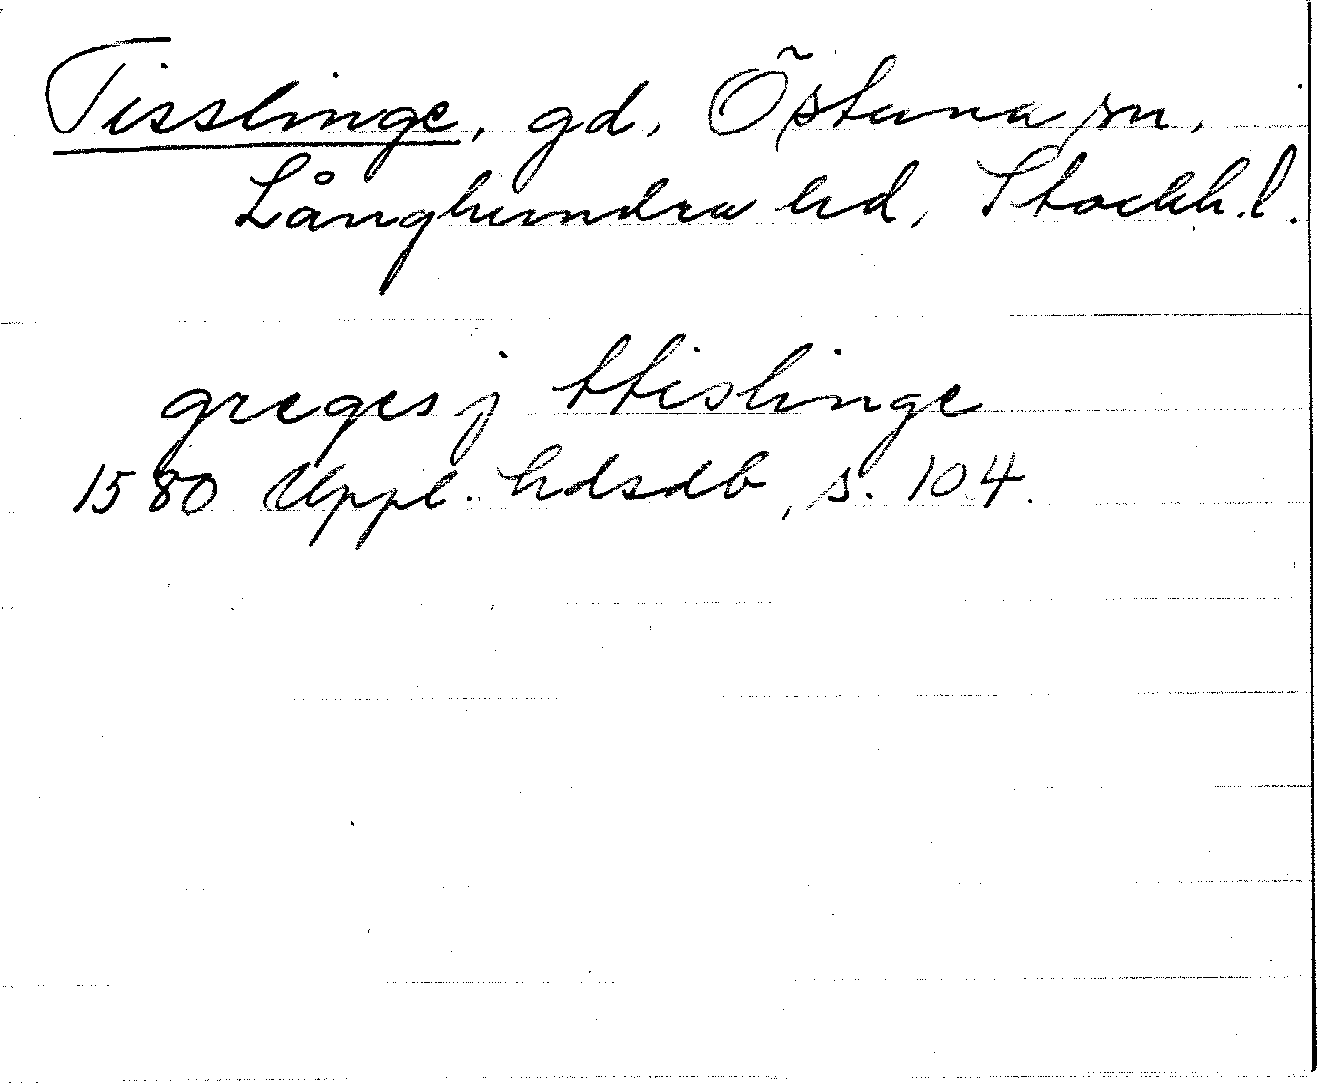 Tisslinge, gd, Östuna sn,
Långhundra hd, Stockh. l.
greges j ttislinge
1580 Uppl. hdsdb, s. 104.